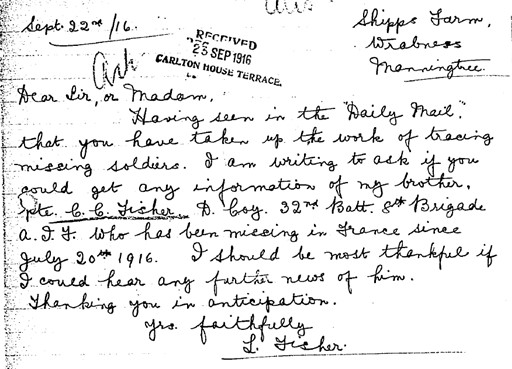 Sept. 22nd /16.
Shipps Farm,
Wrabness
Manningtree.
RECEIVED
25 SEP 1916
CARLTON HOUSE TERRACE.
Dear Sir, or Madam,
Having seen in the "Daily Mail".
that you have taken up the work of tracing
missing soldiers. I am writing to ask if you
could get any information of my brother.
Pte. C. C. Fisher. D. Coy. 32nd Batt. 8th Brigade
A.I.F. who has been missing in France since
July 20th 1916. I should be most thankful if
I could hear any further news of him.
Thanking you in anticipation.
Yrs. faithfully
L. Fisher.